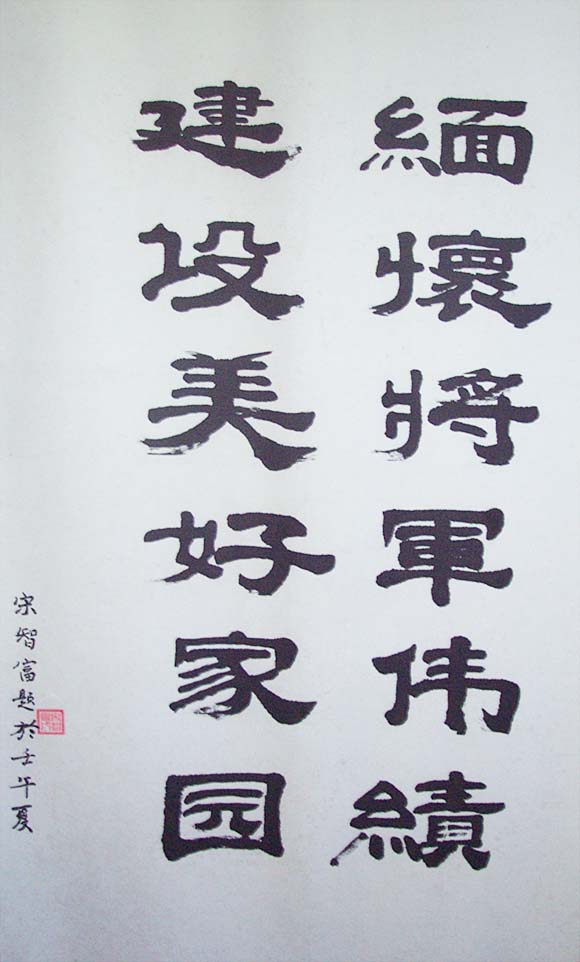 緬懷將軍伟績
建设美好家园
宋智富题於壬午夏